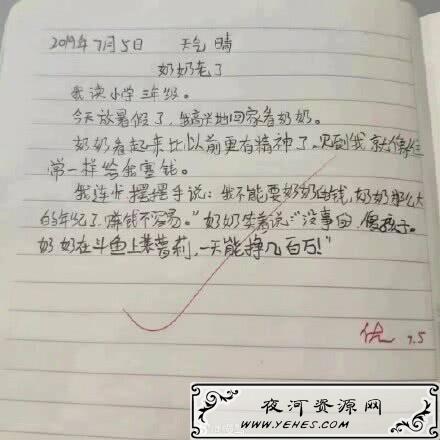 2019年7月5日 天气 晴
奶奶老了
我读小学三年级。
今天放暑假了，我高兴地回家看奶奶。
奶奶看起来比以前更有精神了。见到我就像往
常一样给我塞钱。
我连忙摆摆手说：我不能要奶奶的钱，奶奶那么大
的年纪了，赚钱不容易。”奶奶笑着说：“没事的，傻孩子。
奶奶在斗鱼上装萝莉，一天能挣几百万！”
优 7.5
夜河资源网
WWW.YEHES.COM